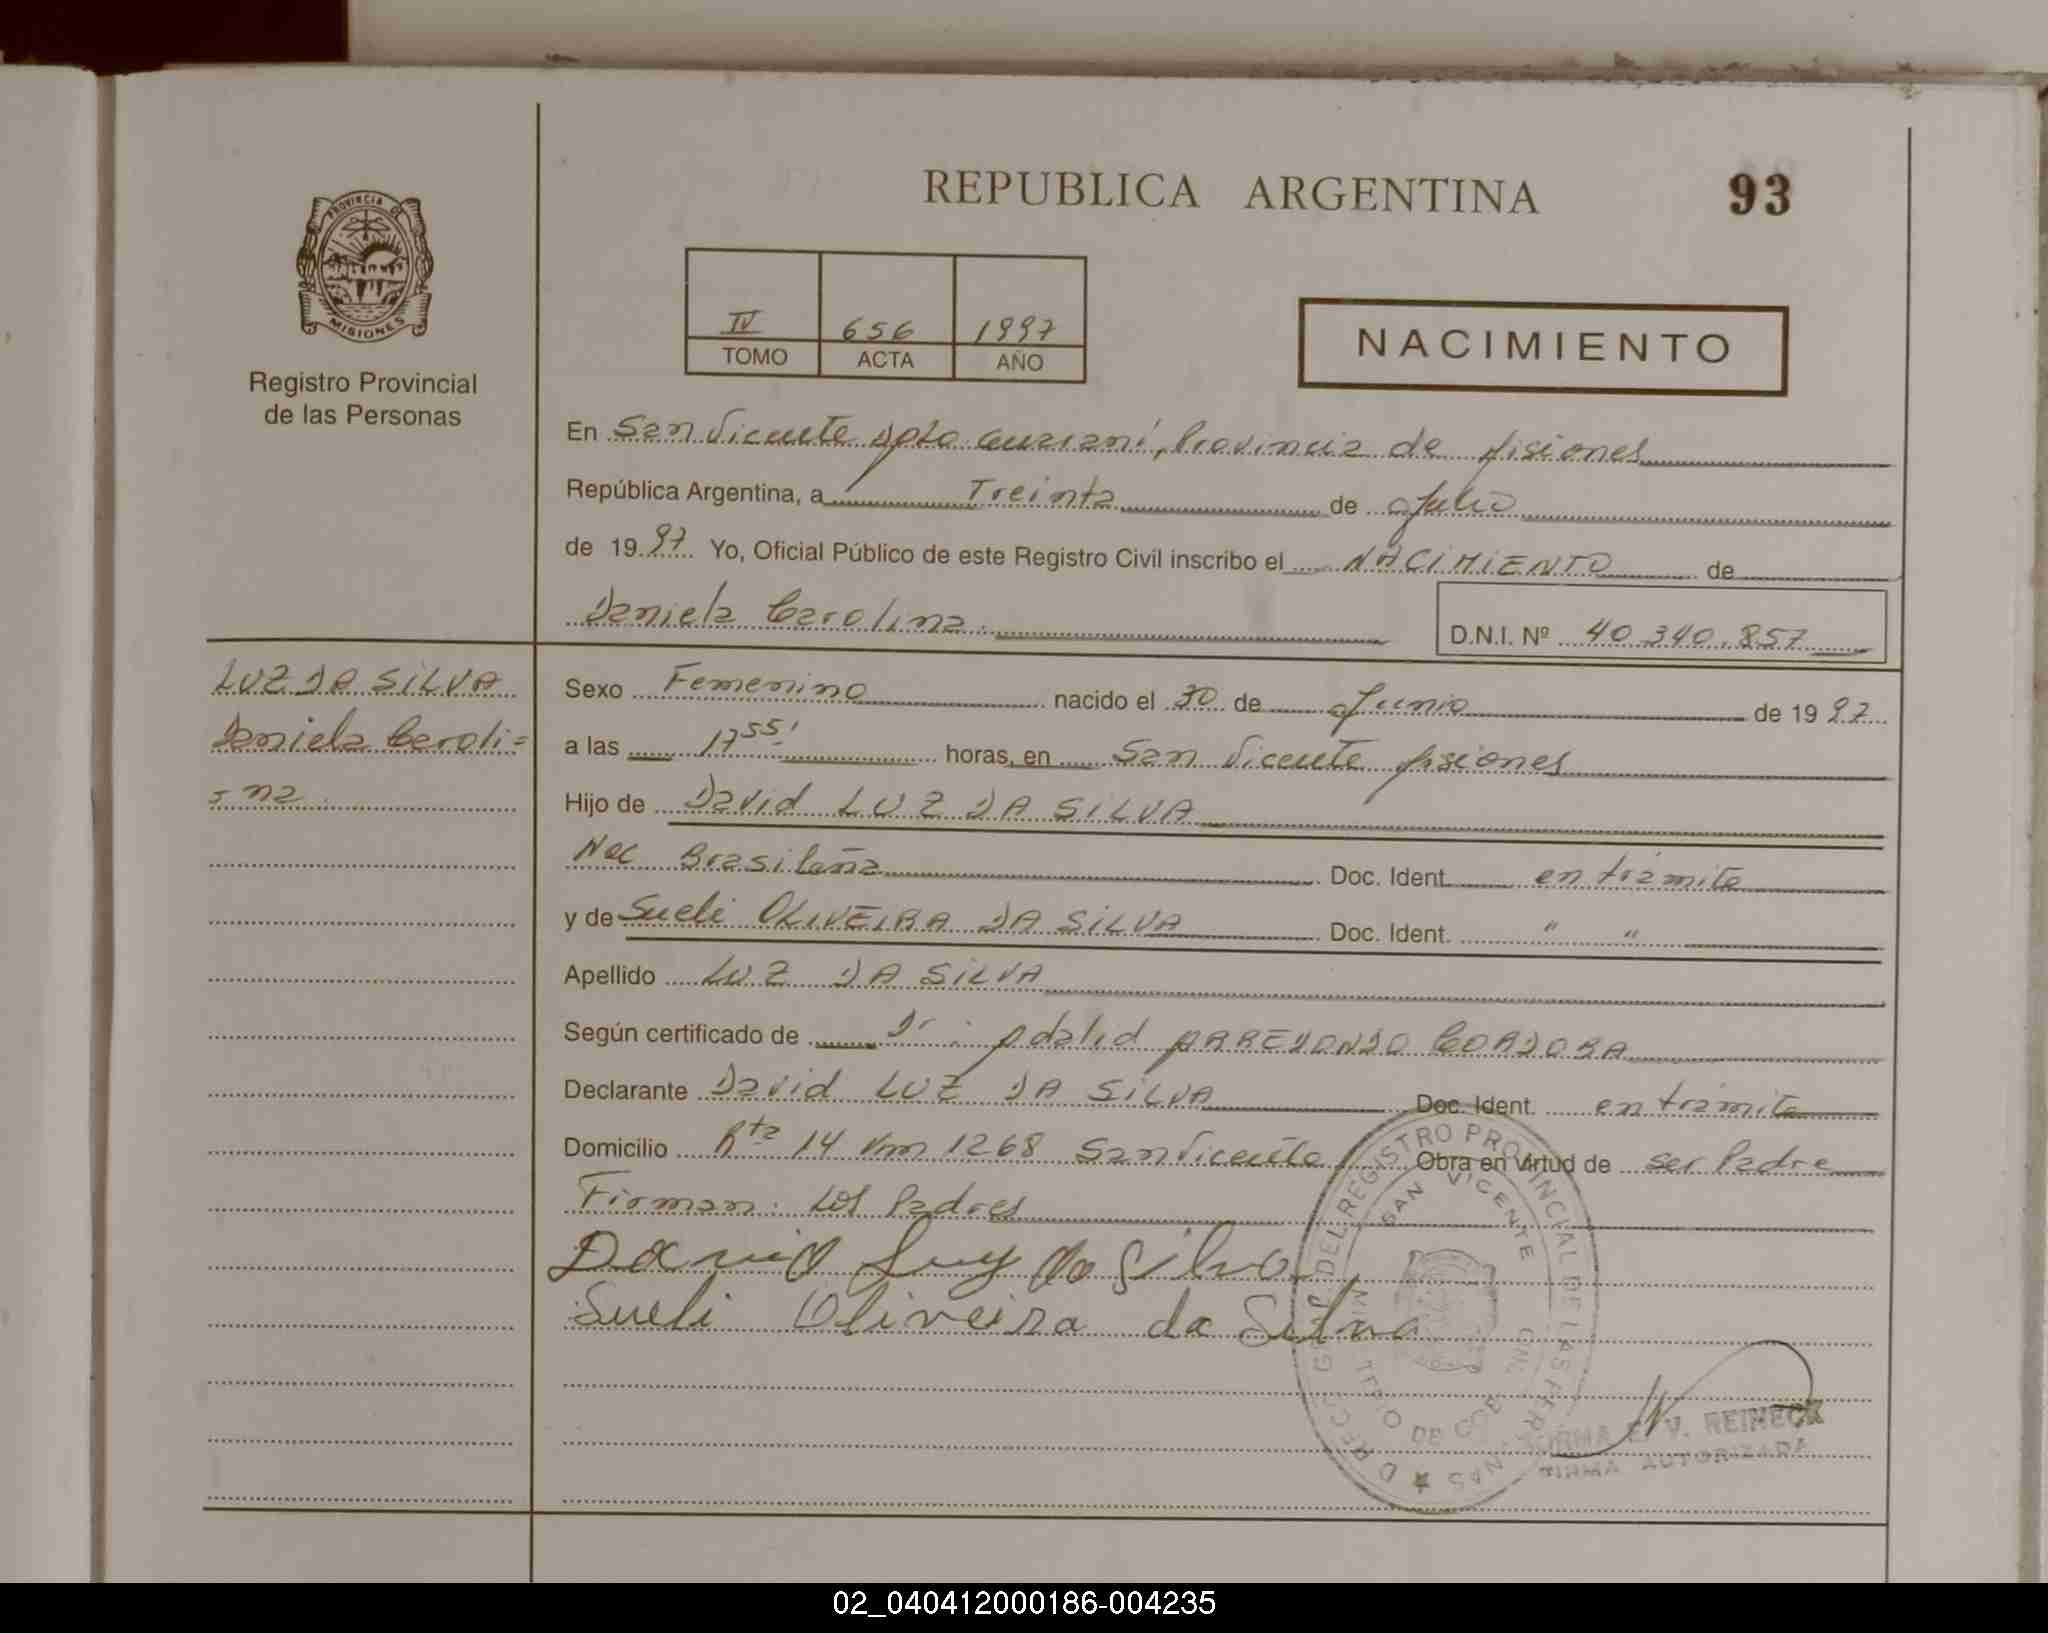 REPUBLICA ARGENTINA
93
PROVINCIA DE
MISIONES
Registro Provincial
de las Personas
IV 656 1997
TOMO ACTA AÑO
NACIMIENTO
En San Vicente Dpto Guaraní, Provincia de Misiones
República Argentina, a Treinta de Julio
de 1997 Yo, Oficial Público de este Registro Civil inscribo el NACIMIENTO de
Daniela Carolina
D.N.I. Nº 40.340.857
LUZ DA SILVA
Daniela Caroli=
= na
Sexo Femenino nacido el 30 de Junio de 1997
a las 17 55' horas, en San Vicente Misiones
Hijo de David LUZ DA SILVA
Nac Brasileña Doc. Ident. en trámite
y de Sueli OLIVEIRA DA SILVA Doc. Ident. " "
Apellido LUZ DA SILVA
Según certificado de Dr. Adalid ARREDONDO CORDOBA
Declarante David LUZ DA SILVA Doc. Ident. en trámite
Domicilio Rta 14 Km 1268 San Vicente Obra en virtud de ser Padre
Firman: Los Padres
David Luz da Silva
Sueli Oliveira da Silva
GRAL DEL REGISTRO PROVINCIAL DE LAS PERSONAS
SAN VICENTE
E. V. REINECK
FIRMA AUTORIZADA
02_040412000186-004235